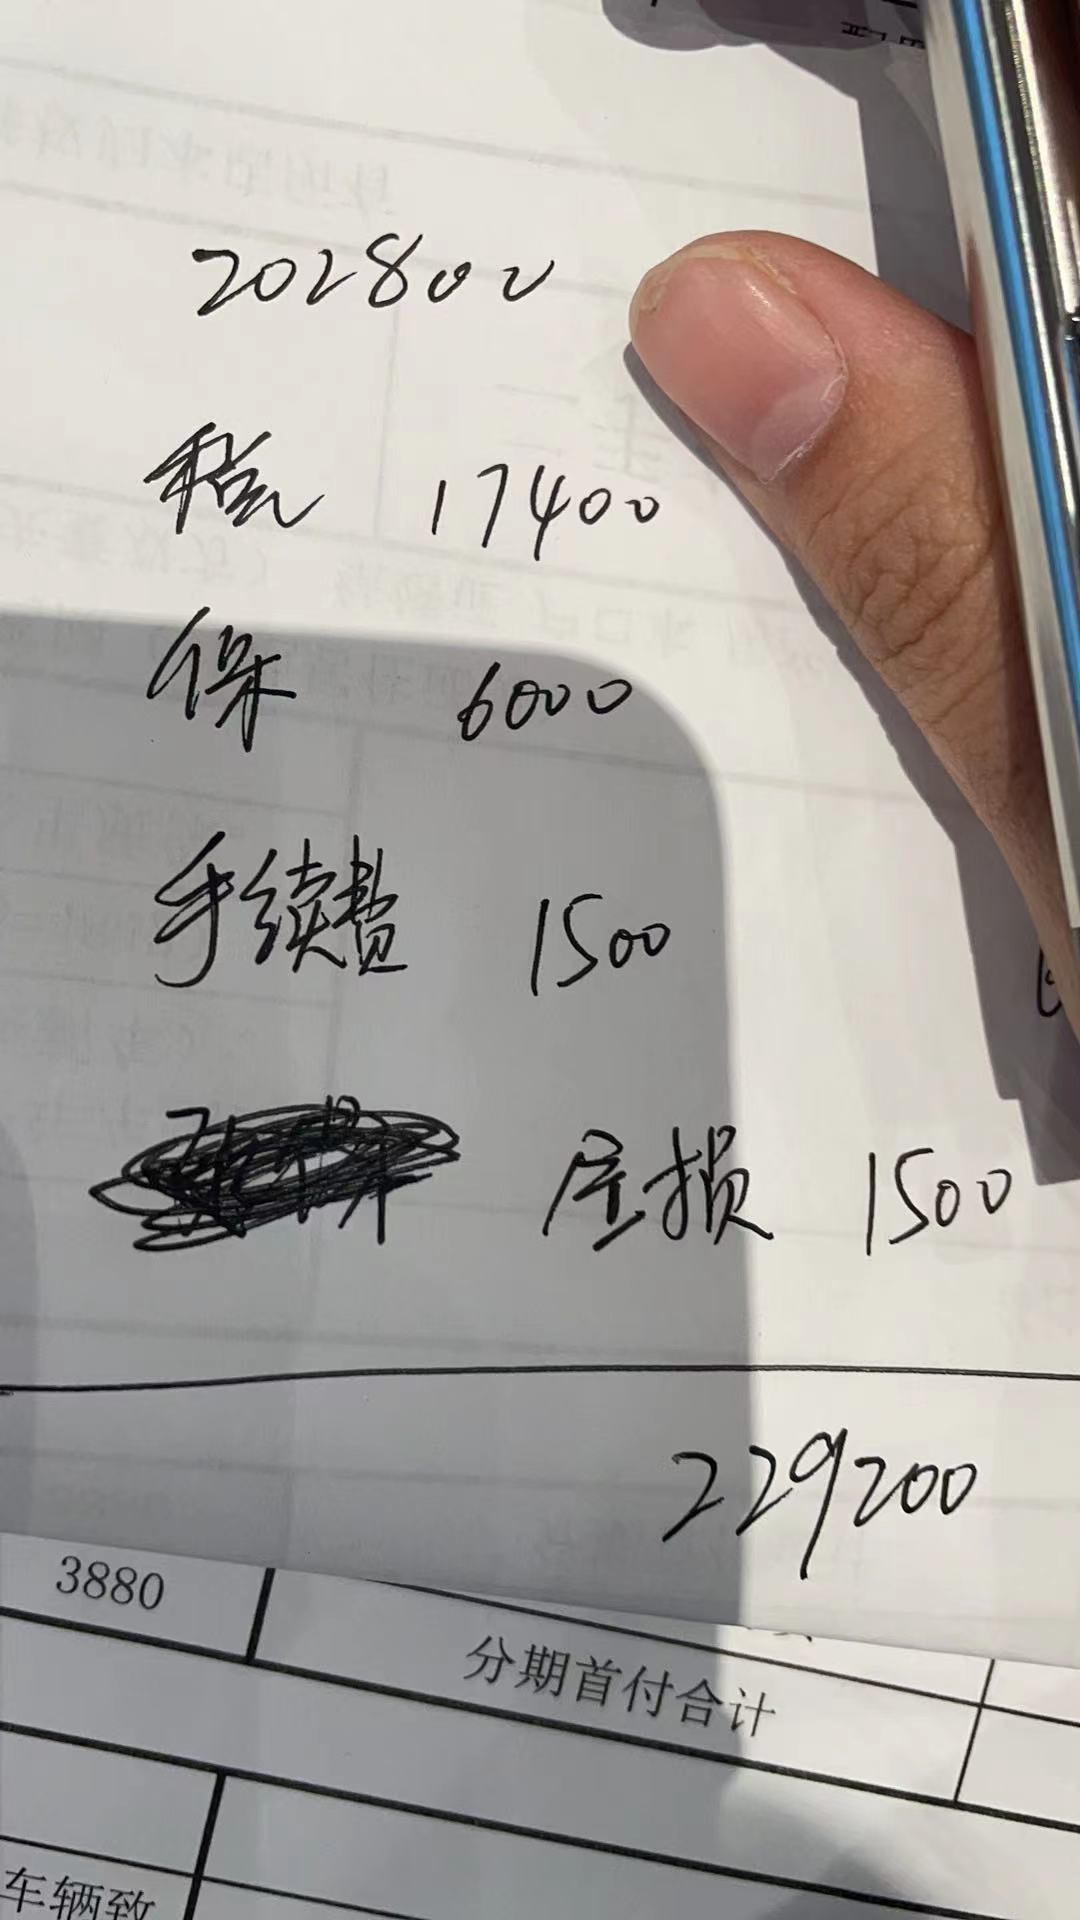 202800
税 17400
保 6000
手续费 1500
损 1500
229200
3880
分期首付合计
车辆致